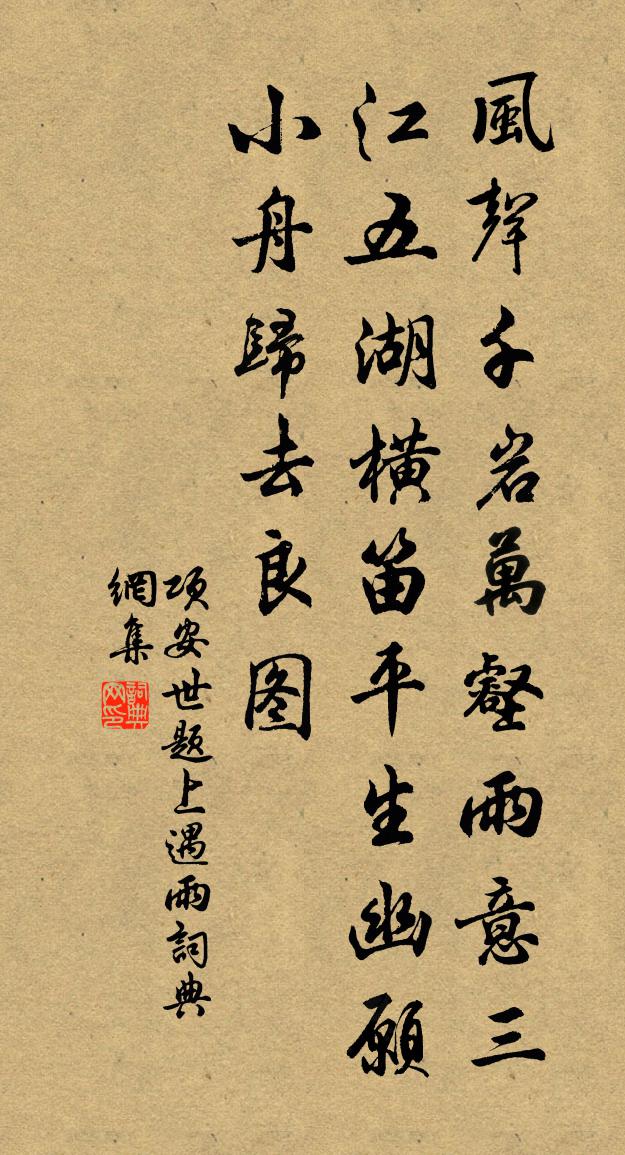 風聲千岩萬壑雨意三
江五湖橫笛平生幽願
小舟歸去良图
项安世题上遇雨詞典
網集
詞典
网印